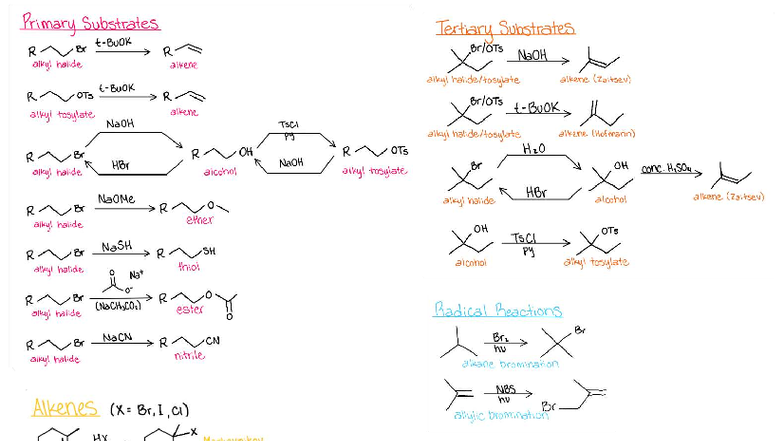 Primary Substrates
R Br t-BuOK R
alkyl halide alkene
R OTs t-BuOK R
alkyl tosylate alkene
NaOH TsCl
py
R Br R OH R OTs
HBr NaOH
alkyl halide alcohol alkyl tosylate
R Br NaOMe R O
alkyl halide ether
R Br NaSH R SH
alkyl halide thiol
O Na⁺
O⁻
R Br (NaCH₃CO₂) R O
O
alkyl halide ester
R Br NaCN R CN
alkyl halide nitrile
Alkenes (X = Br, I, Cl)
HX X
Tertiary Substrates
Br/OTs NaOH
alkyl halide/tosylate alkene (Zaitsev)
Br/OTs t-BuOK
alkyl halide/tosylate alkene (Hofmann)
H₂O
Br OH conc. H₂SO₄
HBr
alkyl halide alcohol alkene (Zaitsev)
OH TsCl OTs
py
alcohol alkyl tosylate
Radical Reactions
Br₂ Br
hν
alkane bromination
NBS
hν Br
allylic bromination